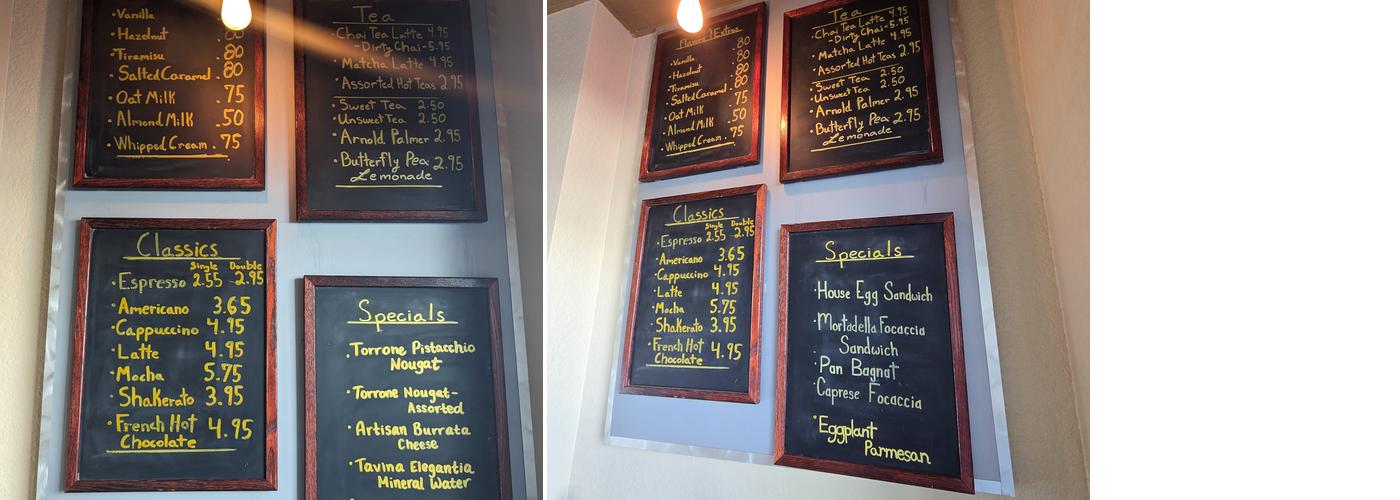 ·Vanilla
·Hazelnut .80
·Tiramisu .80
·Salted Caramel .80
·Oat Milk .75
·Almond Milk .50
·Whipped Cream .75
Tea
·Chai Tea Latte 4.95
-Dirty Chai-5.95
·Matcha Latte 4.95
·Assorted Hot Teas 2.95
·Sweet Tea 2.50
·Unsweet Tea 2.50
·Arnold Palmer 2.95
·Butterfly Pea 2.95
Lemonade
Classics
Single Double
·Espresso 2.55 2.95
·Americano 3.65
·Cappuccino 4.95
·Latte 4.95
·Mocha 5.75
·Shakerato 3.95
·French Hot 4.95
Chocolate
Specials
·Torrone Pistacchio
Nougat
·Torrone Nougat-
Assorted
·Artisan Burrata
Cheese
·Tavina Elegantia
Mineral Water
Flavors & Extras
·Vanilla .80
·Hazelnut .80
·Tiramisu .80
·Salted Caramel .80
·Oat Milk .75
·Almond Milk .50
·Whipped Cream .75
Tea
·Chai Tea Latte 4.95
-Dirty Chai-5.95
·Matcha Latte 4.95
·Assorted Hot Teas 2.95
·Sweet Tea 2.50
·Unsweet Tea 2.50
·Arnold Palmer 2.95
·Butterfly Pea 2.95
Lemonade
Classics
Single Double
·Espresso 2.55 2.95
·Americano 3.65
·Cappuccino 4.95
·Latte 4.95
·Mocha 5.75
·Shakerato 3.95
·French Hot 4.95
Chocolate
Specials
·House Egg Sandwich
·Mortadella Focaccia
Sandwich
·Pan Bagnat
·Caprese Focaccia
·Eggplant
Parmesan